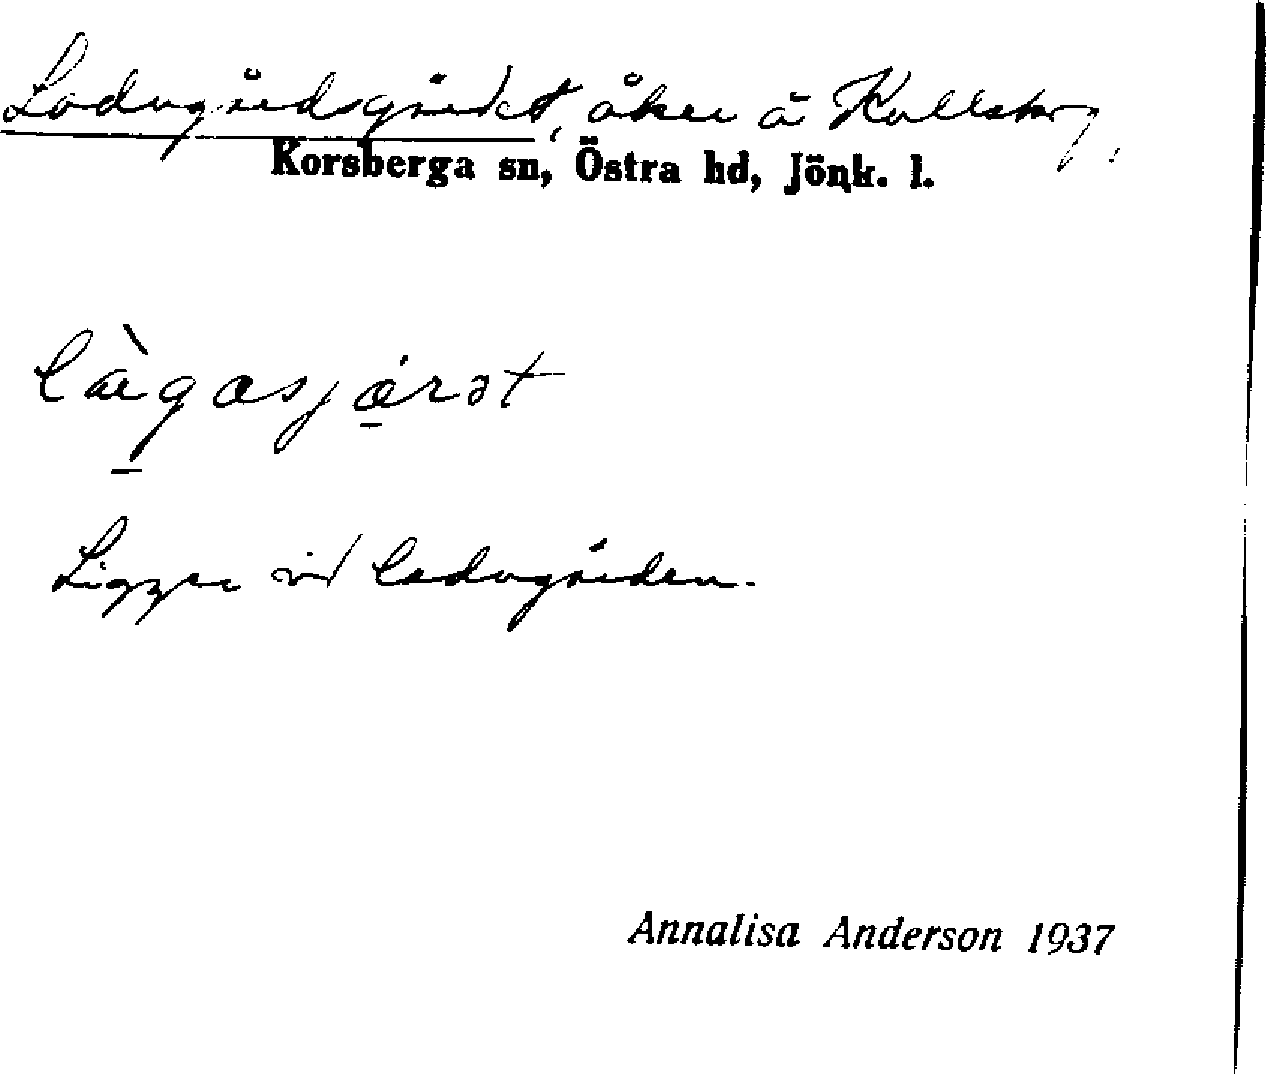 Ladugårdsgärdet, åker å Kallskog.
Korsberga sn, Östra hd, Jönk. l.
læ̀gasjǽrət
Ligger vid ladugården.
Annalisa Anderson 1937